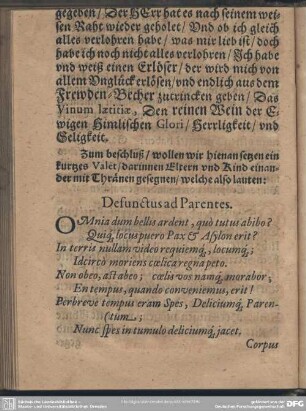 gegeben / Der HErr hat es nach seinem wei-
sen Raht wieder geholet / Vnd ob ich gleich
alles verlohren habe / was mir lieb ist / doch
habe ich noch nicht alles verlohren / Jch habe
vnd weiß einen Erlöser / der wird mich von
allem Vnglück erlösen / vnd endlich aus dem
Frewden-Becher zutrincken geben / Das
Vinum lætitiæ, Den reinen Wein der E-
wigen Himlischen Glori / Herrligkeit / vnd
Seligkeit.
Zum beschluß / wollen wir hienan setzen ein
kurtzes Valet / darinnen Eltern vnd Kind einan-
der mit Thränen gesegnen / welche also lauten:
Defunctus ad Parentes.
OMnia dum bellis ardent, quò tutus abibo?
Quiq; locus puero Pax & Asylon erit?
In terris nullam video requiemq;, locumq́;;
Idcircò moriens cœlica regna peto.
Non obeo, ast abeo; cœlis vos namq́; morabor;
En tempus, quando conveniemus, erit!
Perbreve tempus eram Spes, Deliciumq́;, Paren-
(tum;
Nunc spes in tumulo deliciumq́; jacet,
Corpus